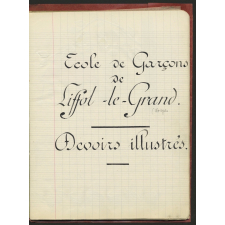 Ecole de Garçons
de
Liffol-le-Grand.
Devoirs illustrés.